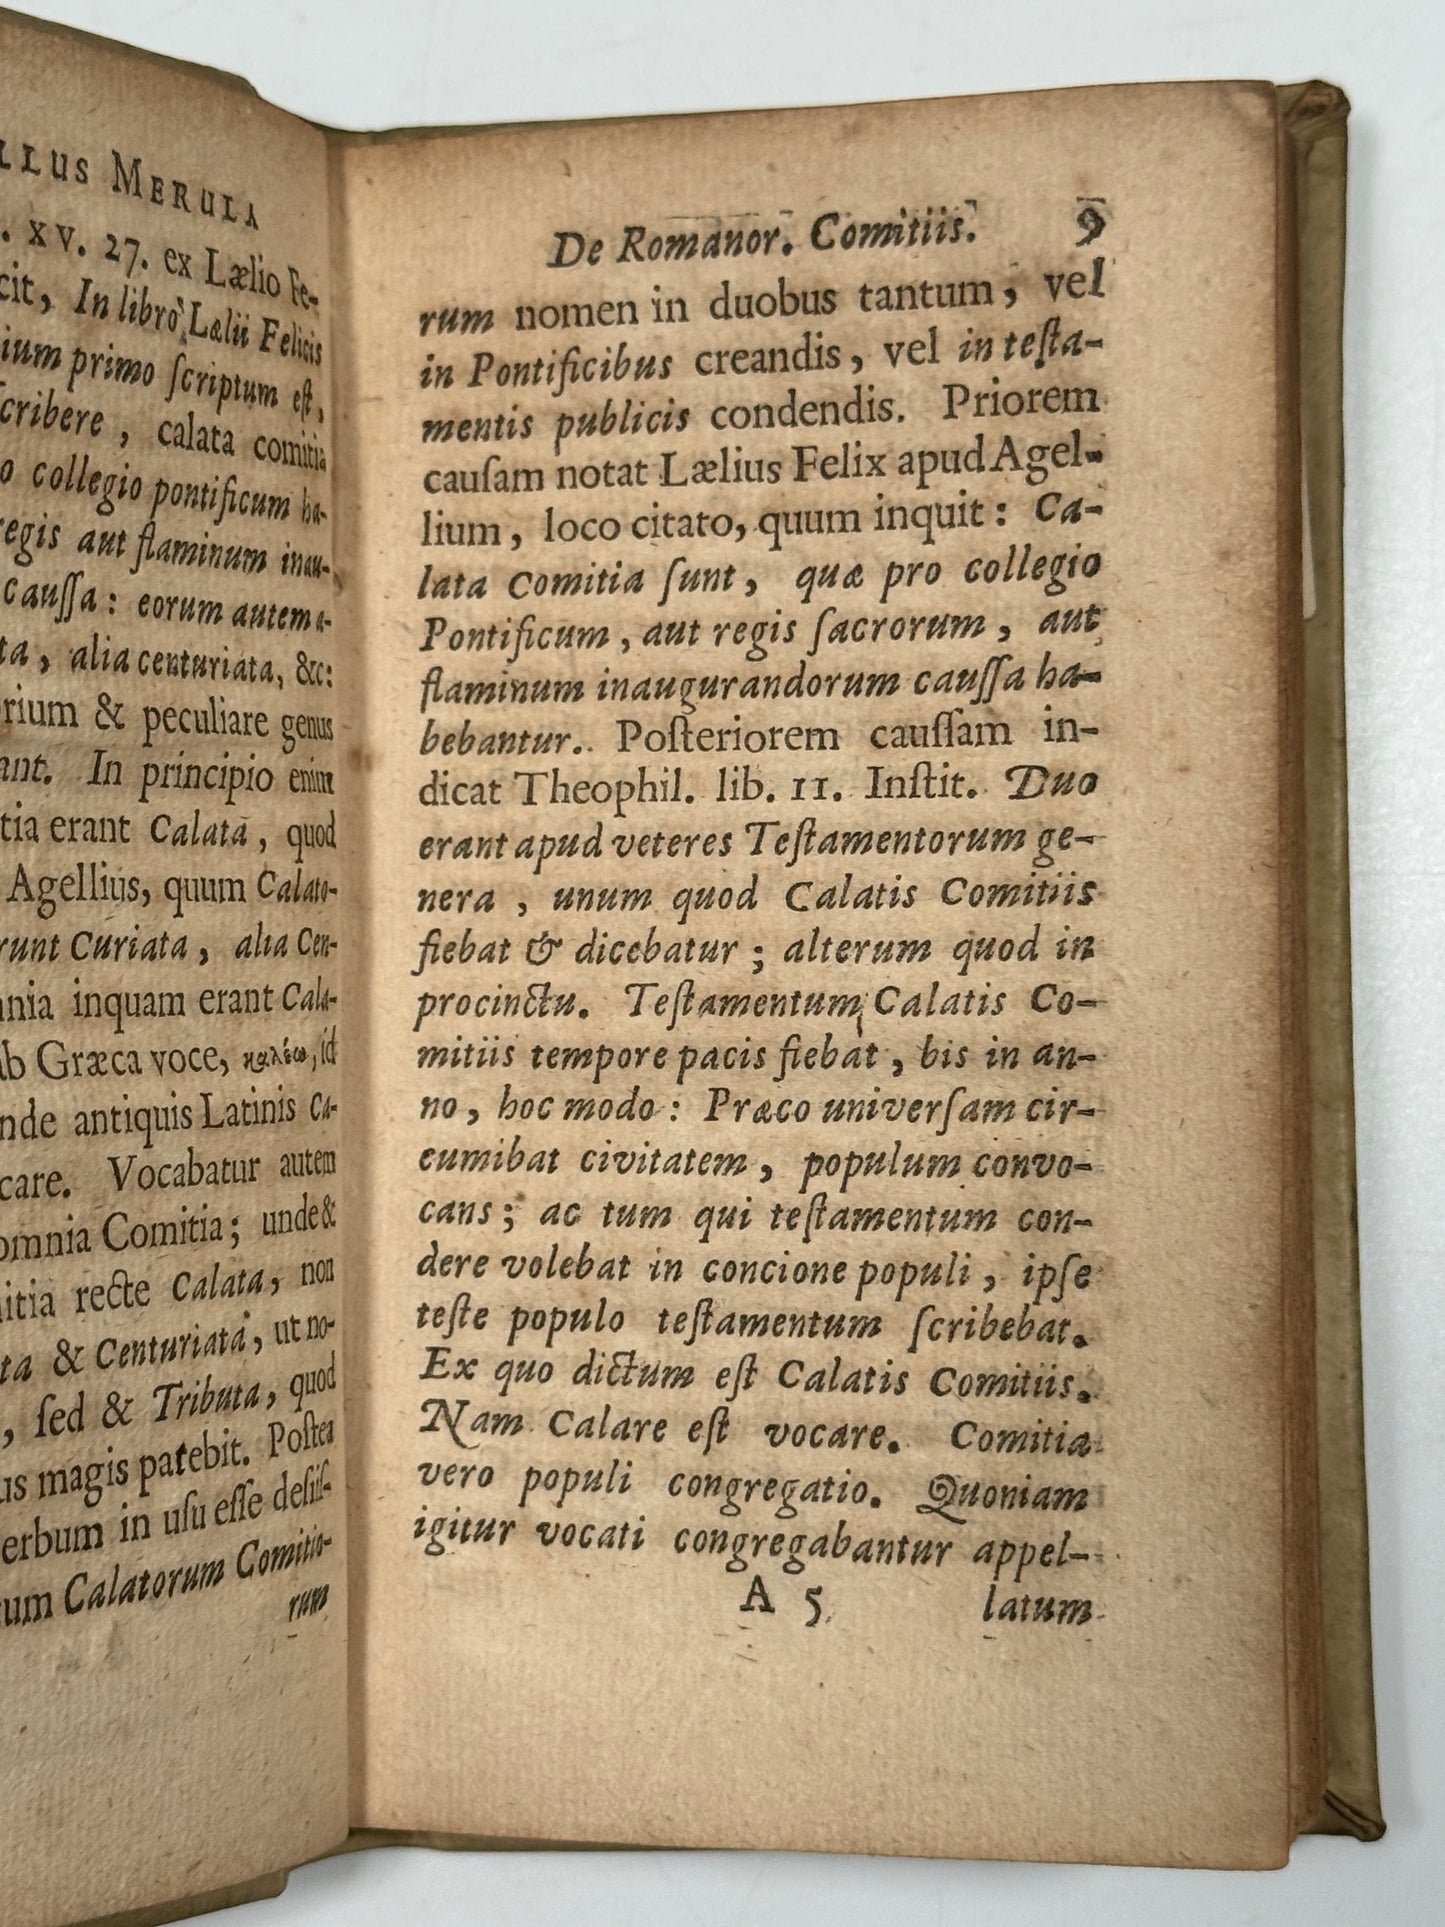 LLUS MERULA
. XV. 27. ex Lælio Fe-
cit, In libro Lælii Felicis
ium primo ſcriptum eſt,
cribere, calata comitia
o collegio pontificum ha-
regis aut flaminum inau-
cauſſa: eorum autem a-
ta, alia centuriata, &c:
rium & peculiare genus
ant. In principio enim
tia erant Calata, quod
Agellius, quum Calato-
runt Curiata, alia Cen-
nia inquam erant Cala-
ab Græca voce, καλέω, id
nde antiquis Latinis Ca-
care. Vocabatur autem
omnia Comitia; unde &
itia recte Calata, non
ta & Centuriata, ut no-
, ſed & Tributa, quod
us magis patebit. Poſtea
erbum in uſu eſſe deſiiſ-
tum Calatorum Comitio-
rum
De Romanor. Comitiis. 9
rum nomen in duobus tantum, vel
in Pontificibus creandis, vel in teſta-
mentis publicis condendis. Priorem
cauſam notat Lælius Felix apud Agel-
lium, loco citato, quum inquit: Ca-
lata Comitia ſunt, quæ pro collegio
Pontificum, aut regis ſacrorum, aut
flaminum inaugurandorum cauſſa ha-
bebantur. Poſteriorem cauſſam in-
dicat Theophil. lib. 11. Inſtit. Duo
erant apud veteres Teſtamentorum ge-
nera, unum quod Calatis Comitiis
fiebat & dicebatur; alterum quod in
procinctu. Teſtamentum Calatis Co-
mitiis tempore pacis fiebat, bis in an-
no, hoc modo: Præco univerſam cir-
cumibat civitatem, populum convo-
cans; ac tum qui teſtamentum con-
dere volebat in concione populi, ipſe
teſte populo teſtamentum ſcribebat.
Ex quo dictum eſt Calatis Comitiis.
Nam Calare eſt vocare. Comitia
vero populi congregatio. Quoniam
igitur vocati congregabantur appel-
A 5 latum